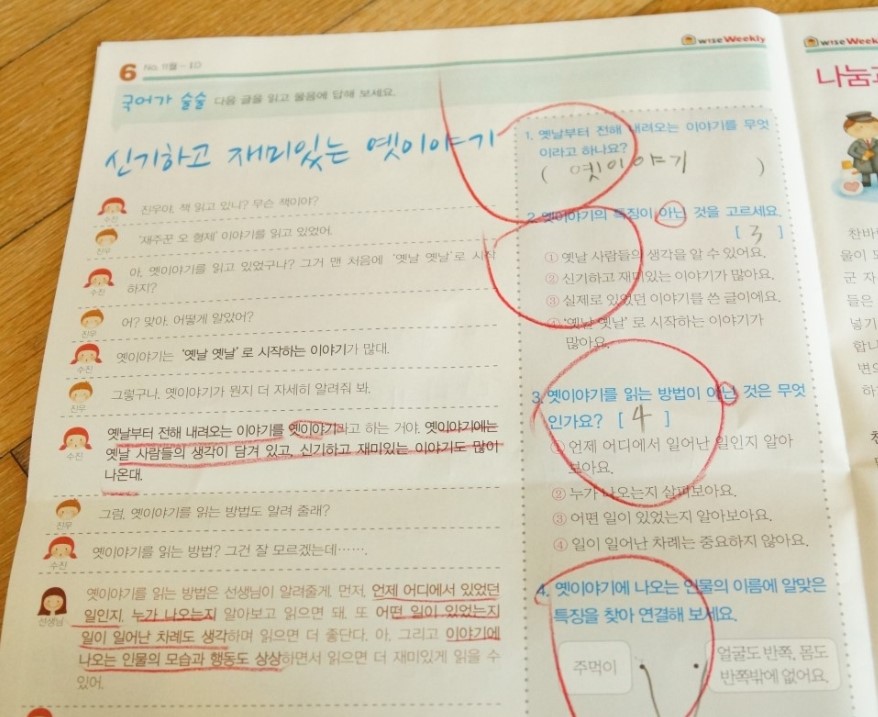 6 No. 11월 - 1D
wise Weekly
wise Week
국어가 술술 다음 글을 읽고 물음에 답해 보세요.
신기하고 재미있는 옛이야기
수진
진우야, 책 읽고 있니? 무슨 책이야?
진우
'재주꾼 오 형제' 이야기를 읽고 있었어.
수진
아, 옛이야기를 읽고 있었구나? 그거 맨 처음에 '옛날 옛날'로 시작
하지?
진우
어? 맞아. 어떻게 알았어?
수진
옛이야기는 '옛날 옛날' 로 시작하는 이야기가 많대.
진우
그렇구나. 옛이야기가 뭔지 더 자세히 알려줘 봐.
수진
옛날부터 전해 내려오는 이야기를 옛이야기라고 하는 거야. 옛이야기에는
옛날 사람들의 생각이 담겨 있고, 신기하고 재미있는 이야기도 많이
나온대.
진우
그럼, 옛이야기를 읽는 방법도 알려 줄래?
수진
옛이야기를 읽는 방법? 그건 잘 모르겠는데…….
선생님
옛이야기를 읽는 방법은 선생님이 알려줄게. 먼저, 언제 어디에서 있었던
일인지, 누가 나오는지 알아보고 읽으면 돼. 또 어떤 일이 있었는지
일이 일어난 차례도 생각하며 읽으면 더 좋단다. 아, 그리고 이야기에
나오는 인물의 모습과 행동도 상상하면서 읽으면 더 재미있게 읽을 수
있어.
1. 옛날부터 전해 내려오는 이야기를 무엇
이라고 하나요?
( 옛이야기 )
2. 옛이야기의 특징이 아닌 것을 고르세요.
[ 3 ]
① 옛날 사람들의 생각을 알 수 있어요.
② 신기하고 재미있는 이야기가 많아요.
③ 실제로 있었던 이야기를 쓴 글이에요.
④ '옛날 옛날' 로 시작하는 이야기가
많아요.
3. 옛이야기를 읽는 방법이 아닌 것은 무엇
인가요? [ 4 ]
① 언제 어디에서 일어난 일인지 알아
보아요.
② 누가 나오는지 살펴보아요.
③ 어떤 일이 있었는지 알아보아요.
④ 일이 일어난 차례는 중요하지 않아요.
4. 옛이야기에 나오는 인물의 이름에 알맞은
특징을 찾아 연결해 보세요.
주먹이
얼굴도 반쪽, 몸도
반쪽밖에 없어요.
군 자
들은
넣기
합니
하